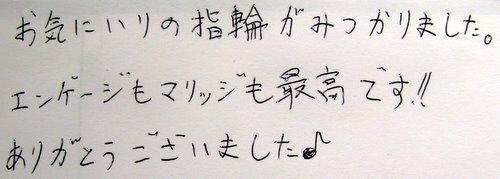 お気にいりの指輪がみつかりました。
エンゲージもマリッジも最高です!!
ありがとうございました♪